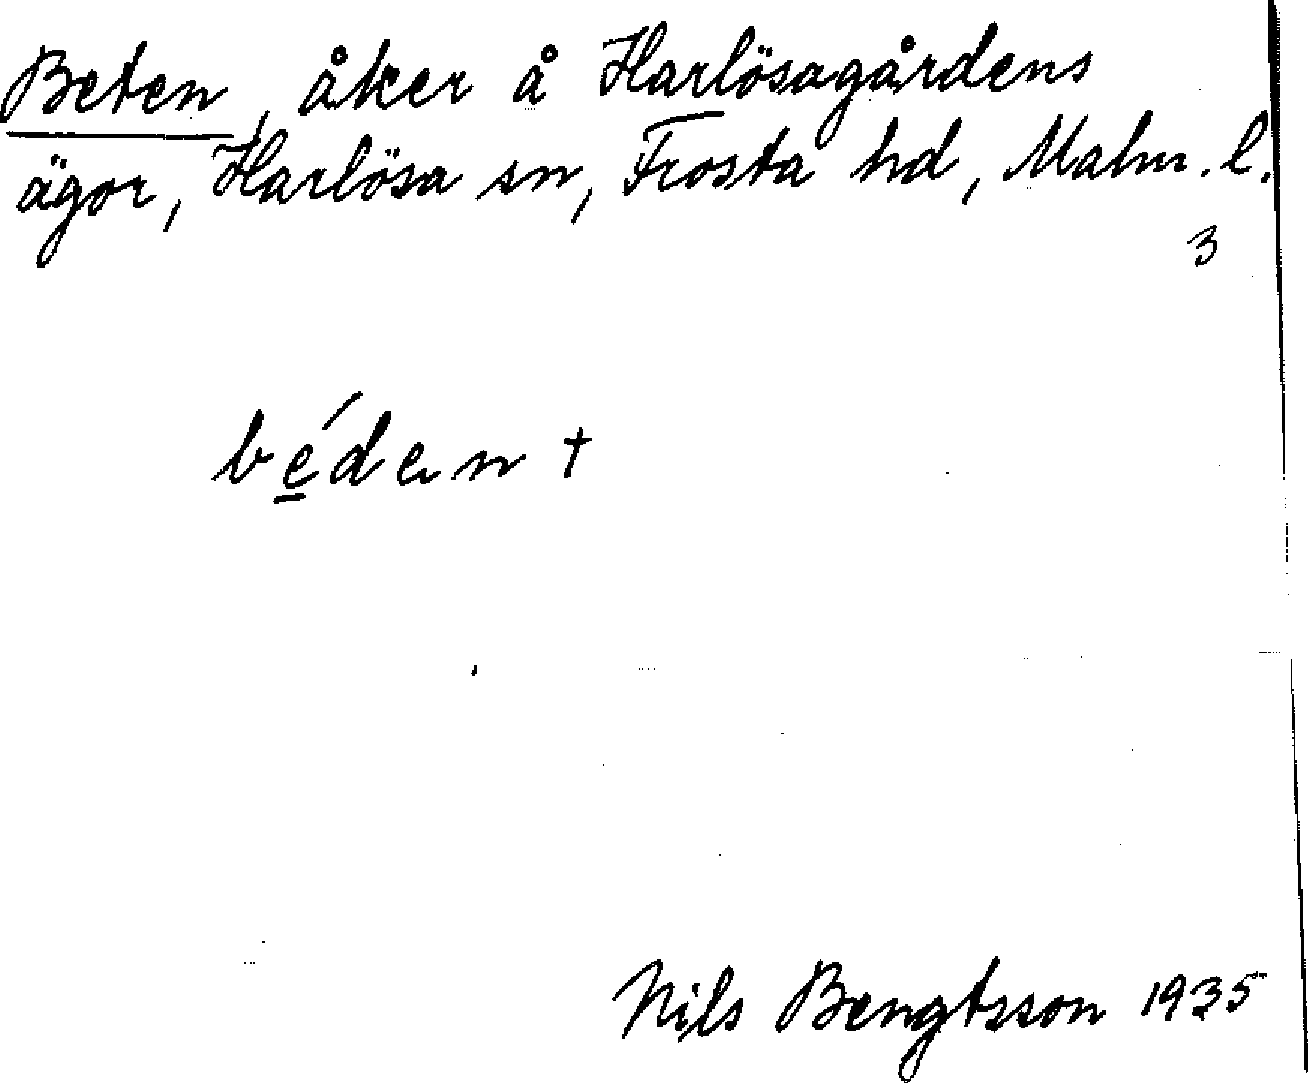 Beten, åker å Harlösagårdens
ägor, Harlösa sn, Frosta hd, Malm. l.
3
be̱´den †
Nils Bengtsson 1935